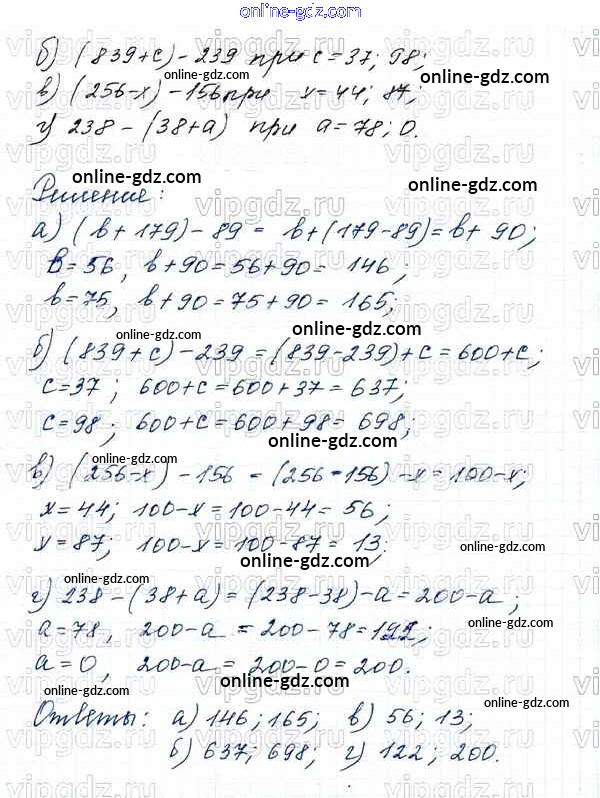 online-gdz.com
б) (839+c) - 239 при c = 37; 98;
online-gdz.com
в) (256-x) - 156 при x = 44; 87;
online-gdz.com
г) 238 - (38+a) при a = 78; 0.
Решение:
online-gdz.com
а) (b + 179) - 89 = b + (179-89) = b + 90;
B = 56, b + 90 = 56 + 90 = 146;
online-gdz.com
b = 75, b + 90 = 75 + 90 = 165;
online-gdz.com
б) (839 + c) - 239 = (839 - 239) + c = 600 + c;
c = 37; 600 + c = 600 + 37 = 637;
online-gdz.com
c = 98; 600 + c = 600 + 98 = 698;
online-gdz.com
в) (256-x) - 156 = (256 - 156) - x = 100 - x;
x = 44; 100 - x = 100 - 44 = 56;
online-gdz.com
x = 87; 100 - x = 100 - 87 = 13;
online-gdz.com
г) 238 - (38 + a) = (238 - 38) - a = 200 - a;
online-gdz.com
a = 78, 200 - a = 200 - 78 = 122;
a = 0, 200 - a = 200 - 0 = 200.
online-gdz.com
Ответы: а) 146; 165; в) 56; 13;
б) 637; 698; г) 122; 200.
online-gdz.com
vipgdz.ru